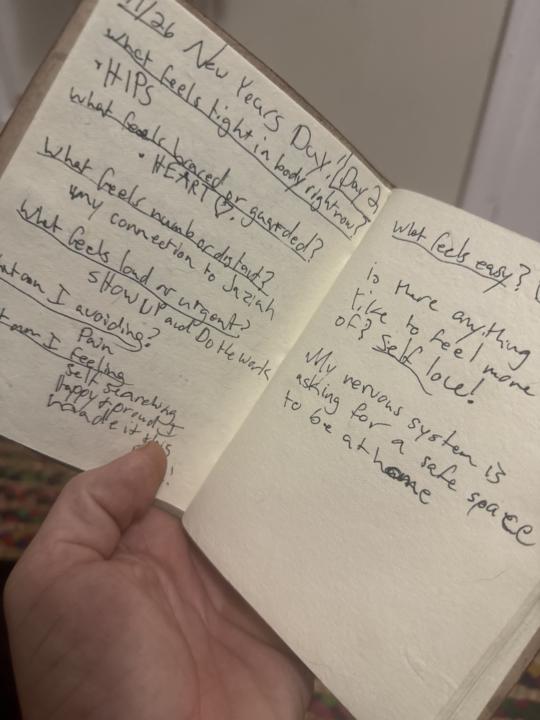 1/26 New Years Day! (Day 2
what feels tight in body right now?
• HIPS
what feels braced or guarded?
• HEART ♡.
What feels numb or distant?
my connection to Jaziah
What feels loud or urgent?
SHOW UP and Do the work
what am I avoiding?
Pain
am I feeling
self searching
happy + proud I
made it this
!
what feels easy?
is there anything
I like to feel more
of? Self love!
My nervous system is
asking for a safe space
to be at home